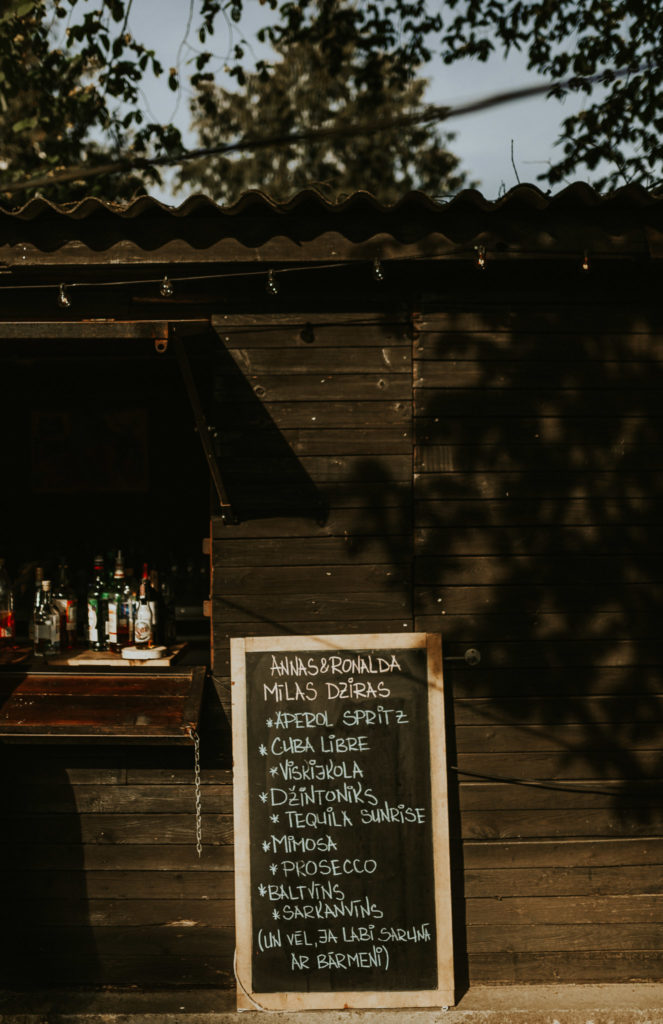 ANNAS&RONALDA
MĪLAS DZĪRAS
*APEROL SPRITZ
*CUBA LIBRE
*VISKIJKOLA
*DŽINTONIKS
*TEQUILA SUNRISE
*MIMOSA
*PROSECCO
*BALTVĪNS
*SARKANVĪNS
(UN VĒL, JA LABI SARUNĀ
AR BĀRMENI)